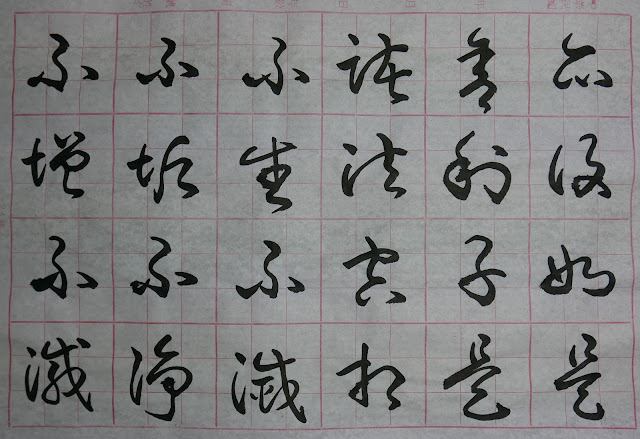 亦復如是
舍利子是
諸法空相
不生不滅
不垢不淨
不增不減